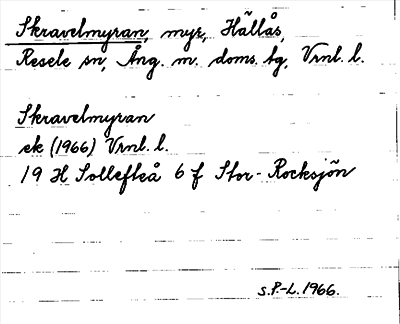 Skravelmyran, myr, Hällås,
Resele sn, Ång. m. doms. tg, Vrnl. l.
Skravelmyran
ek (1966) Vrnl. l.
19 H Sollefteå 6 f Stor-Rocksjön
S.P.-L. 1966.